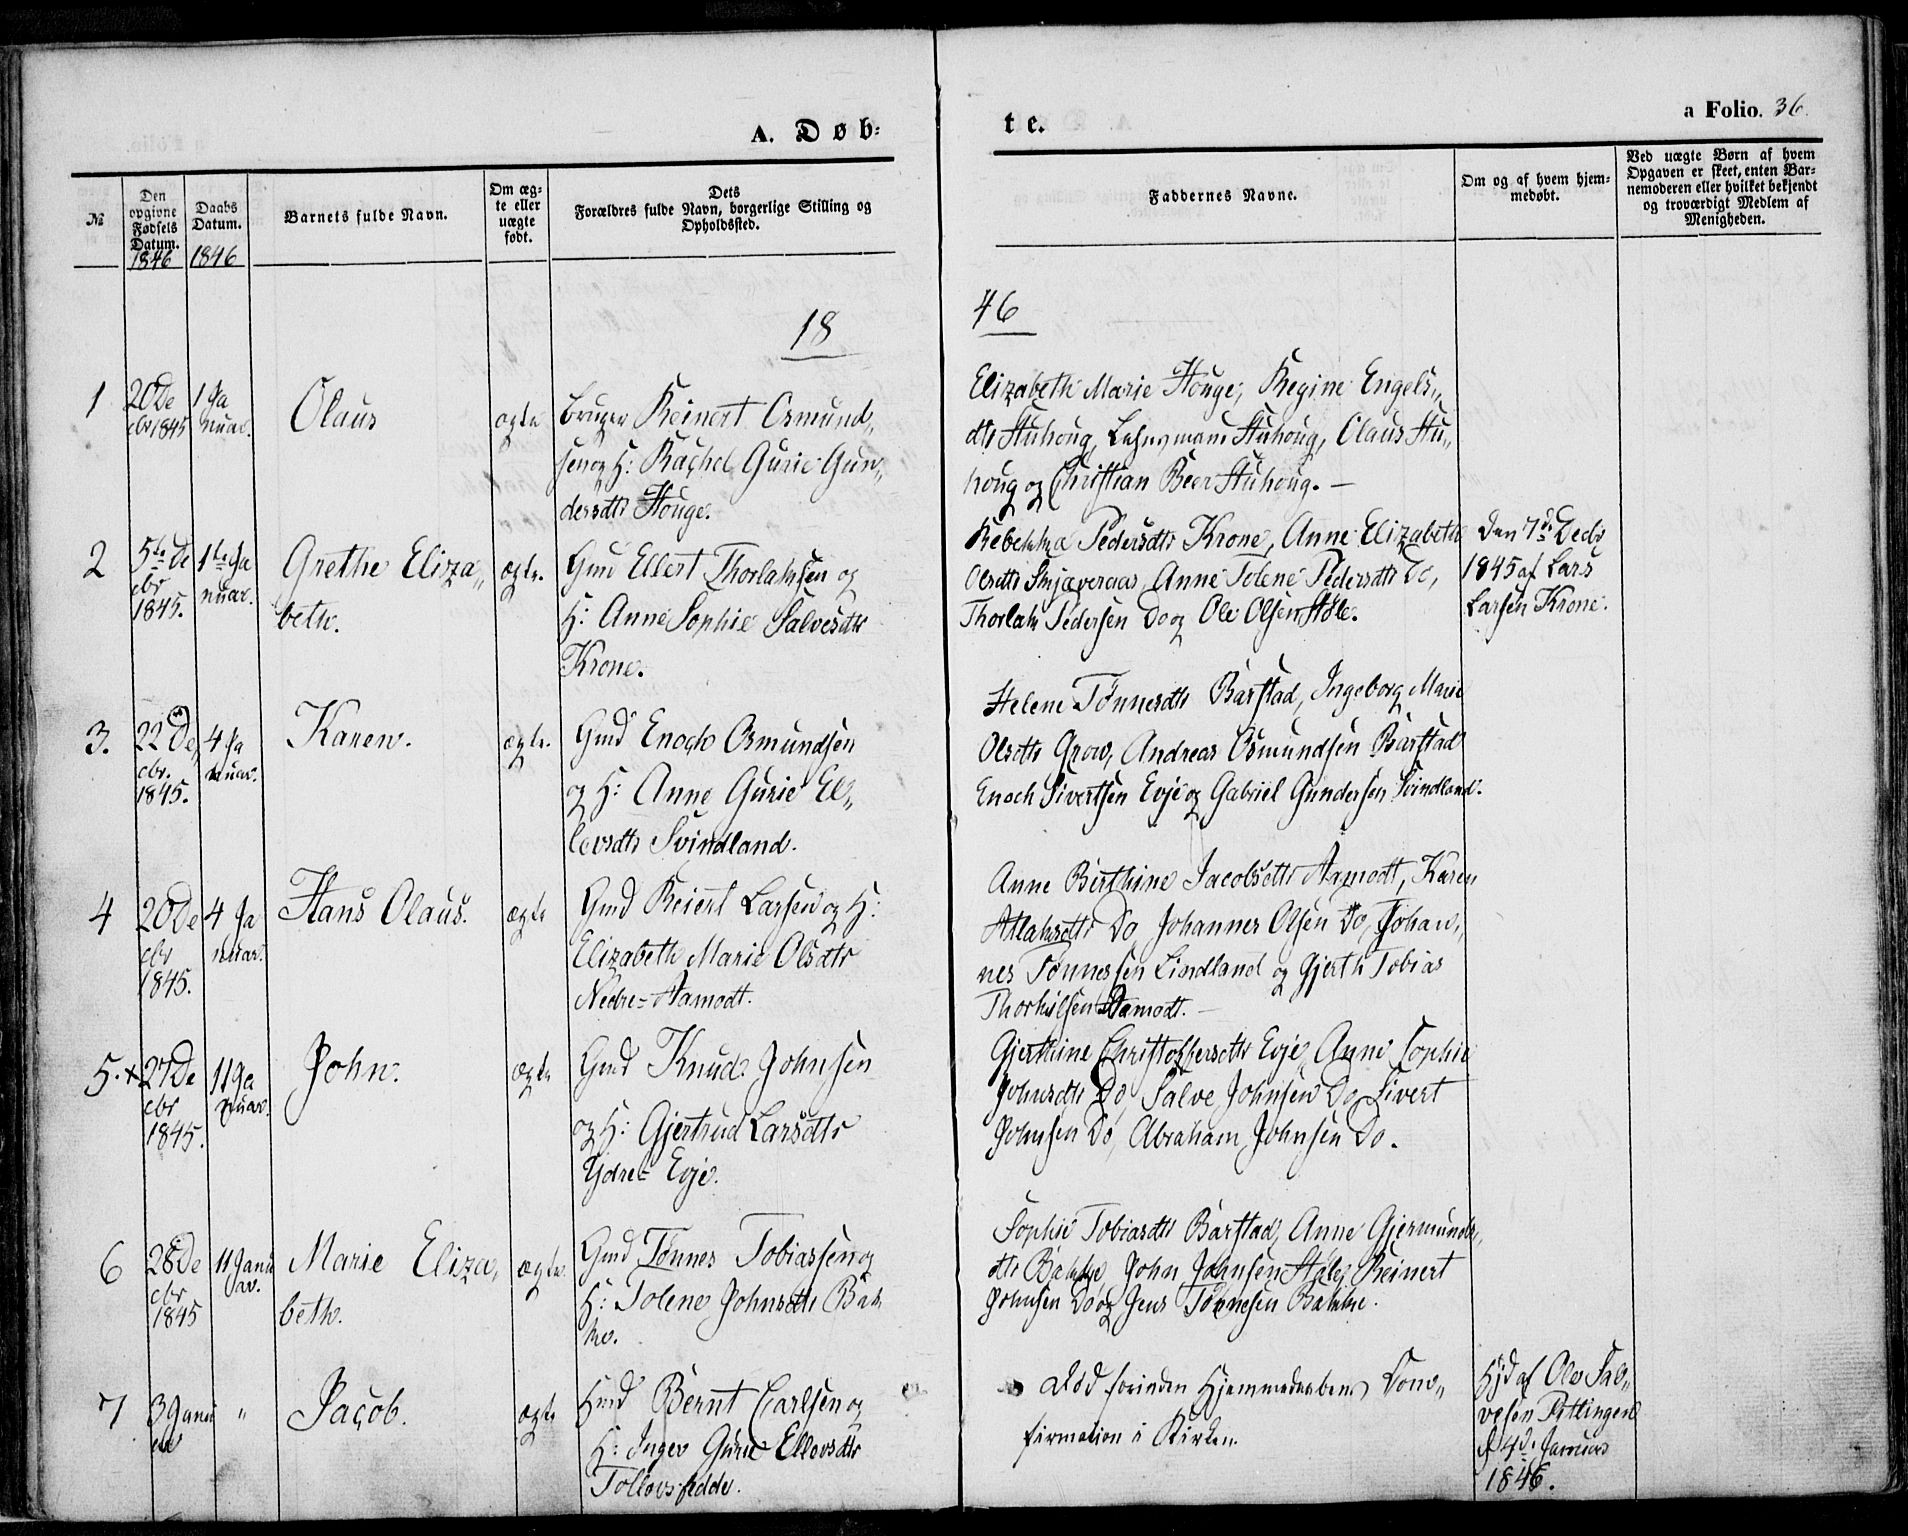 A. Døb-
te.
a Folio. 36.
№
Den opgivne Fødsels Datum.
1846
Daabs Datum.
1846
Barnets fulde Navn.
Om ægte eller uægte født.
Dets
Forældres fulde Navn, borgerlige Stilling og
Opholdssted.
Faddernes Navne.
Om og af hvem hjem-
medøbt.
Ved uægte Børn af hvem
Opgaven er skeet, enten Bar-
nemoderen eller hvilket bekjendt
og troværdigt Medlem af
Menigheden.
18
46
1
20 De
cbr 1845
1 Ja
nuar.
Olaus
ægte
Bruger Reinert Osmund„
sen og H: Rachel Gurie Gun„
dersdtr Houge.
Elizabeth Marie Houge, Regine Engels„
dtr Stuhoug, Lehnsmand Stuhoug, Claus Stu„
houg og Christian Beer Stuhoug. —
2
5te De
cbr
1845.
1te Ja
nuar.
Grethe Eliza„
beth.
ægte.
Gmd Ellert Thorlaksen og
H: Anne Sophie Salvesdtr
Krone.
Rebekka Pedersdtr Krone, Anne Elizabeth
Olsdtr Skjæveraas, Anne Tolene Pedersdtr Do,
Thorlak Pedersen Do og Ole Olsen Støle.
Den 7d. Decbr
1845 af Lars
Larsen Krone.
3.
22 De
cbr.
1845.
4 Ja
nuar.
Karen.
ægte.
Gmd Enoch Osmundsen
og H: Anne Gurie El„
levsdtr Svindland.
Helene Tønnesdtr Barstad, Ingeborg Marie
Olsdtr Grow, Andreas Osmundsen Barstad
Enoch Sivertsen Evje og Gabriel Gundersen Svindland.
4
20 De
cbr
1845.
4 Ja
nuar.
Hans Olaus.
ægte
Gmd Reiert Larsen og H:
Elizabeth Marie Olsdtr
Nedre= Aamodt.
Anne Berthine Jacobsdtr Aamodt, Karen
Atlaksdtr Do, Johannes Olsen Do, Johan„
nes Tønnessen Lindland og Gjerth Tobias
Thorkilsen Aamodt. —
5.+
27 De
cbr
1845.
11 Ja
nuar.
John.
ægte
Gmd Knud Johnsen
og H: Gjertrud Larsdtr
Ydre= Evje.
Gjerthine Christoffersdtr Evje, Anne Sophie
Johnsdtr Do, Salve Johnsen Do, Sivert
Johnsen Do, Abraham Johnsen Do.
6
28 De
cbr
1845
11 Janu
ar.
Marie Eliza„
beth.
ægte.
Gmd Tønnes Tobiassen og
H: Tolene Johnsdtr Bak
ke.
Sophie Tobiasdtr Barstad, Anne Gjermunds„
dtr Bakke, John Johnsen Støle, Reinert
Johnsen Do og Jens Tønnesen Bakke.
7
3 Janu
ar
"
Jacob.
ægte
Hmd Bernt Carlsen og
H: Inger Gurie Ellevsdtr
Tollevsfedde.
Død forinden Hjemmedaabens Con„
firmation i Kirken.
Hjd af Ole Sal„
vesen Tillingen
d 4d. Januar
1846.